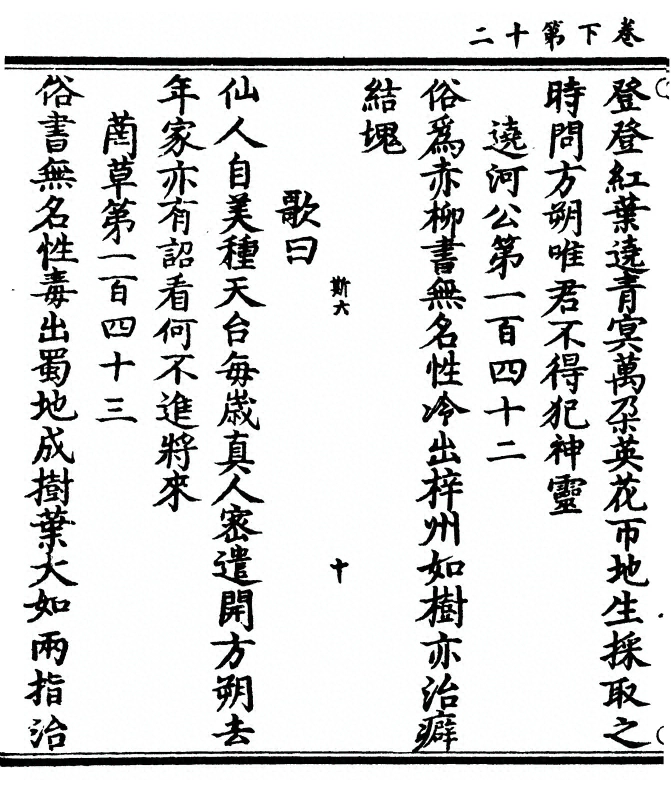 卷下第十二
登登紅葉遶青冥萬朶英花帀地生採取之
時問方朔唯君不得犯神靈
遶河公第一百四十二
俗爲赤柳書無名性冷出梓州如樹亦治癖
結塊
斯六
十
歌曰
仙人自美種天台每歲真人密遣開方朔去
年家亦有詔看何不進將來
蕳草第一百四十三
俗書無名性毒出蜀地成樹葉大如兩指治